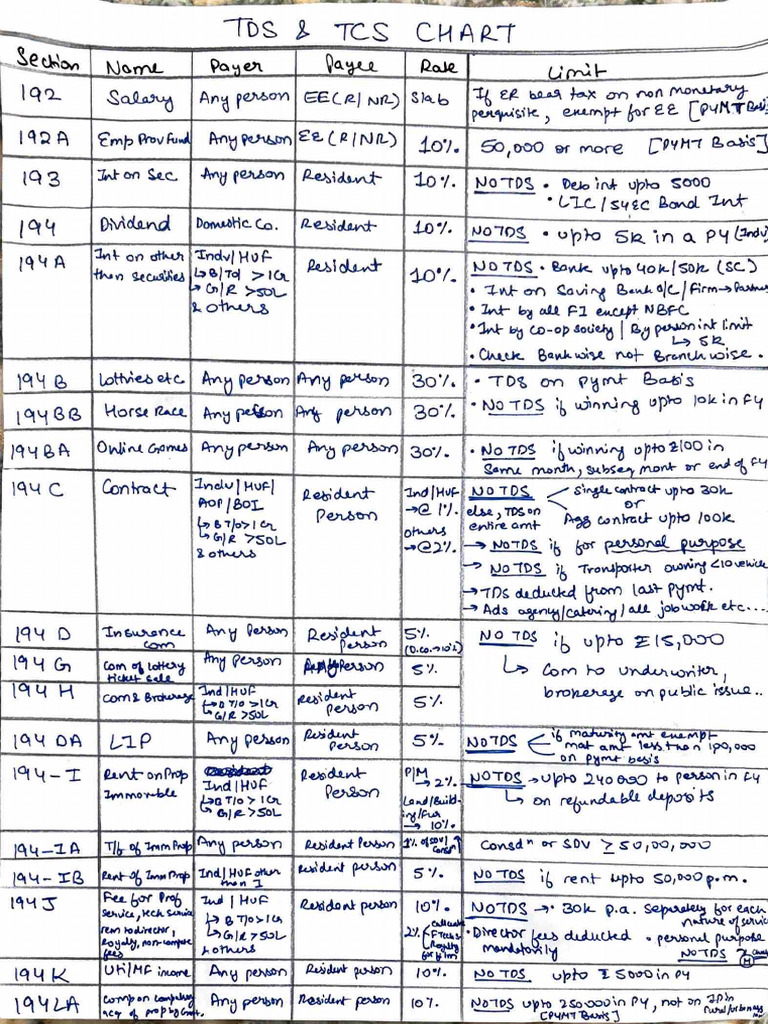 TDS & TCS CHART
Section Name Payer Payee Rate Limit
192 Salary Any person EE(R/NR) Slab If ER bear tax on non monetary
perquisite, exempt for EE [PYMT Basis
192A Emp Prov Fund Any person EE(R/NR) 10%. 50,000 or more [PYMT Basis]
193 Int on Sec Any person Resident 10%. NO TDS • Deb int upto 5000
• LIC/54EC Bond Int
194 Dividend Domestic Co. Resident 10%. NO TDS • upto 5k in a PY (Indv)
194A Int on other
than securities
Indv/HUF
↳ B/TO/ > 1Cr
↳ G/R > 50L
& others
Resident 10%.
NO TDS • Bank upto 40k/50k (SC)
• Int on Saving Bank A/C / Firm → Partner
• Int by all FI except NBFC
• Int by co-op society / By person int limit
↳ 5k
• Check Bank wise not Branch wise.
194B Lottries etc Any person Any person 30%. • TDS on pymt Basis
194BB Horse Race Any person Any person 30%. • NO TDS if winning upto 10k in FY
194BA Online Games Any person Any person 30%. • NO TDS if winning upto ₹100 in
same month, subseq mont or end of FY
194C Contract
Indv/HUF/
AOP/BOI
↳ B T/O > 1Cr
↳ G/R > 50L
& others
Resident
Person
Ind/HUF
→ @ 1%.
others
→ @ 2%.
NO TDS single contract upto 30k
or
else, TDS on
entire amt
Agg contract upto 100k
→ NO TDS if for personal purpose
→ NO TDS if Transporter owning <10 vehicle
→ TDS deducted from last pymt.
→ Ads agency/catering/all jobwork etc....
194D Insurance
com
Any Person Resident
Person
5%.
(D.Co.→10%)
NO TDS if upto ₹15,000
194G Com of lottery
ticket sale
Any Person person 5%.
↳ Com to underwriter,
brokerage on public issue..
194H Com & Brokerage
Ind/HUF
↳ B T/O > 1Cr
↳ G/R > 50L
Resident
person
5%.
194DA LIP Any Person Resident
Person
5%.
NO TDS if maturity amt exempt
mat amt less than 1,00,000
on pymt basis
194-I Rent on Prop
Immovable
Ind/HUF
↳ B T/O > 1Cr
↳ G/R > 50L
Resident
Person
P/M
→ 2%.
Land/Build-
ing/Fur
→ 10%.
NO TDS → upto 240000 to person in FY
↳ on refundable deposits
194-IA T/f of Imm Prop Any Person Resident Person 1% of SDV/
Consdn
Consdn or SDV ≥ 50,00,000
194-IB Rent of Imm Prop Ind/HUF other
than I
Resident person 5%. NO TDS if rent upto 50,000 p.m.
194J Fee for Prof
service, tech service
rem to director,
Royalty, non-compete
fees
Ind/HUF
↳ B T/O > 1Cr
↳ G/R > 50L
& others
Resident person
10%.
2% Call center
F Tech S
Royalty
for film
NO TDS → • 30k p.a. separately for each
nature of service
• Director fees deducted
mandatorily
• personal purpose
NO TDS
194K UTI/MF income Any Person Resident person 10%. NO TDS upto ₹5000 in PY
194LA Comp on compulsory
acq of prop by Govt.
Any Person Resident person 10%. NO TDS upto 250000 in PY, not on
[PYMT Basis]